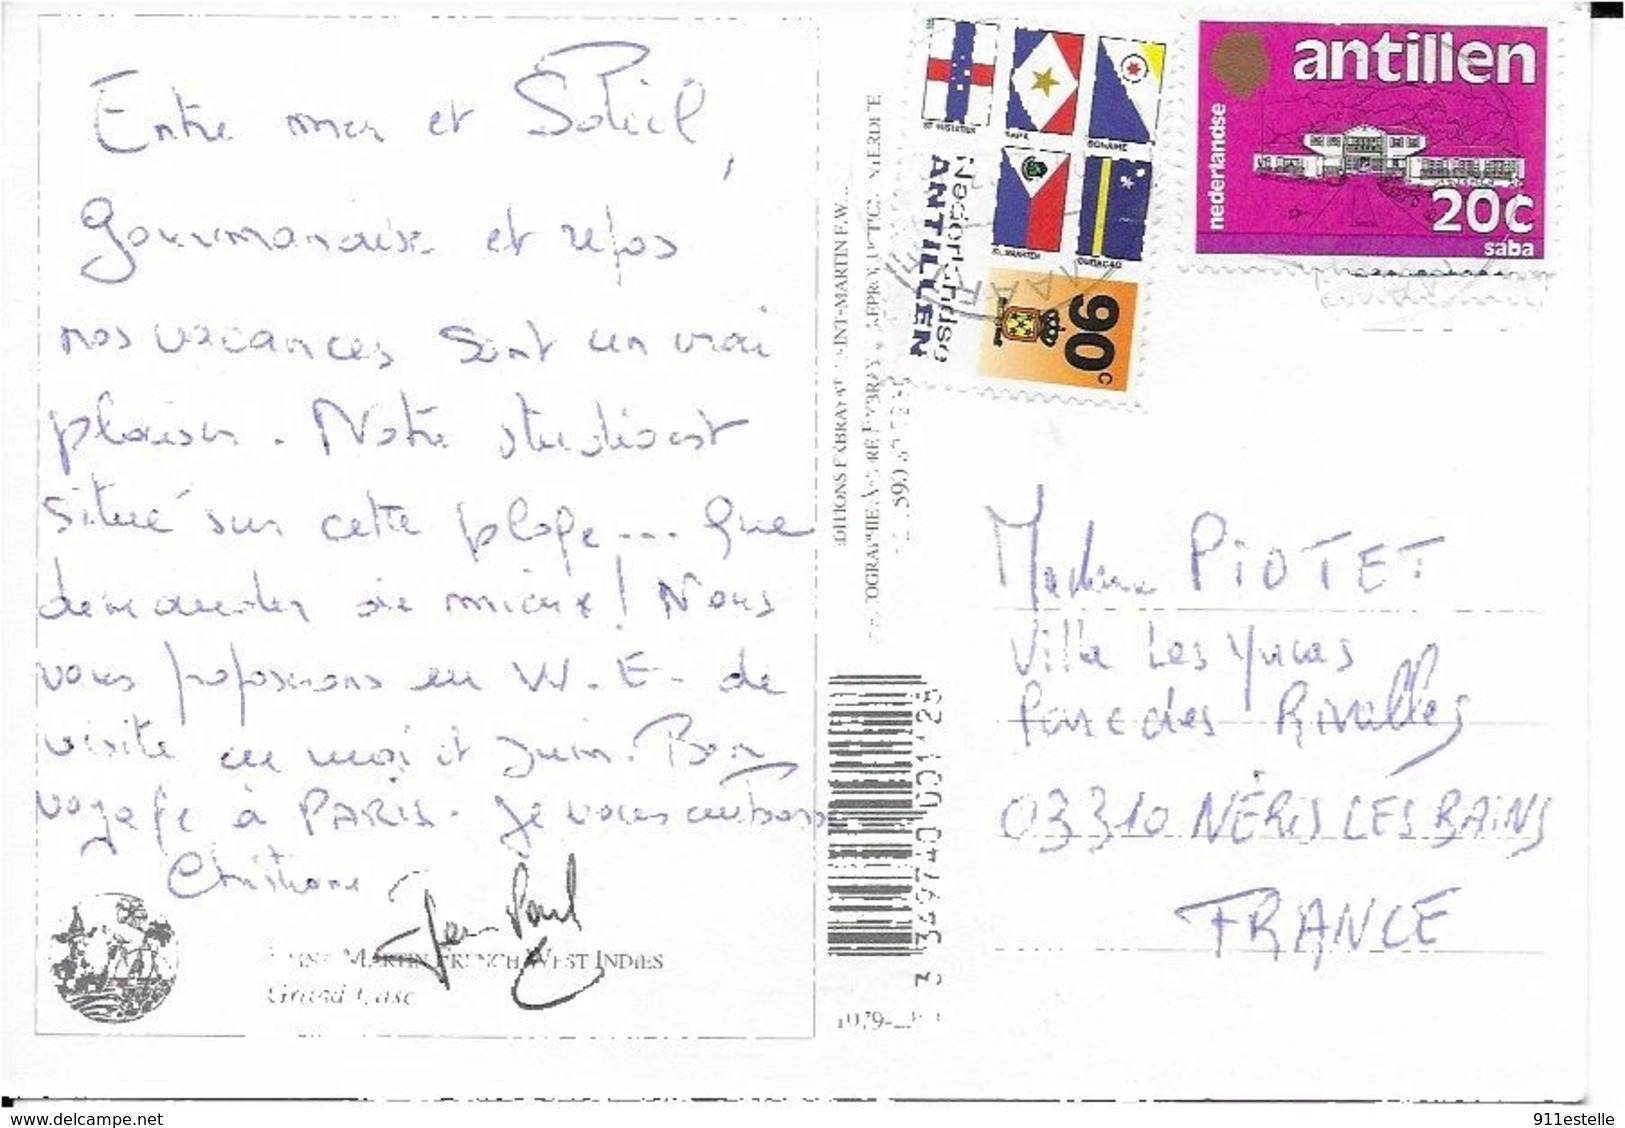 Entre mer et Soleil,
gourmandise et repos
nos vacances sont un vrai
plaisir. Notre studio est
situé sur cette plage... Que
demander de mieux! Nous
vous proposerons un W.E. de
visite en mai et juin. Bon
voyage à PARIS. Je vous embrasse
Christiane
Jean Paul
SAINT MARTIN FRENCH WEST INDIES
Grand Case
nederlandse
antillen
20c
saba
ST. EUSTATIUS
SABA
BONAIRE
ST. MAARTEN
CURACAO
Nederlandse
ANTILLEN
90c
3 349740 001425
Madame PIOTET
Villa Les Yucas
Parc des Rivalles
03310 NÉRIS LES BAINS
FRANCE
911estelle